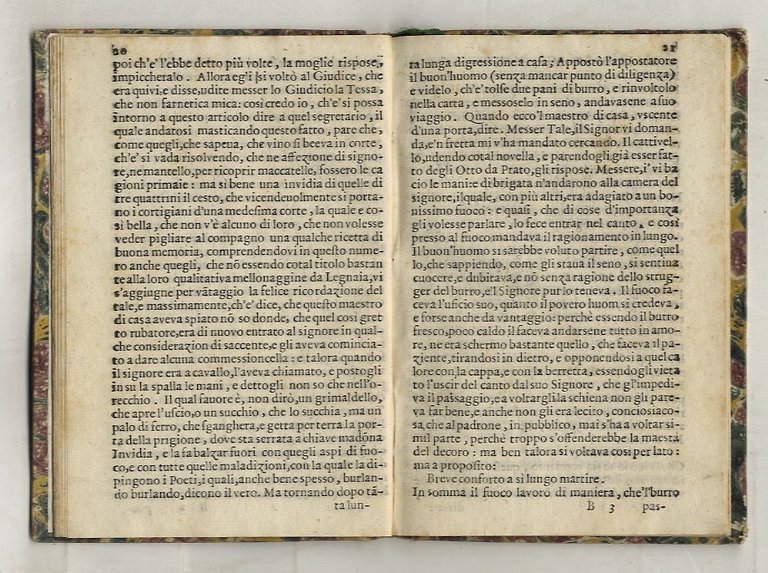 20
poi ch'e' l'ebbe detto più volte, la moglie rispose,
impiccheralo. Allora egli si voltò al Giudice, che
era quivi, e disse, udite messer lo Giudicio la Tessa,
che non farnetica mica: così credo io, ch'e' si possa
intorno a questo articolo dire a quel segretario, il
quale andatosi masticando questo fatto, pare che,
come quegli, che sapeua, che vino si beeva in corte,
ch'e' si vada risolvendo, che ne affezione di signo-
re, ne mantello, per ricoprir maccatelle, fossero le ca
gioni primaie: ma si bene una invidia di quelle di
tre quattrini il cesto, che vicendeuolmente si porta-
no i cortigiani d'una medesima corte, la quale e co-
sì bella, che non v'è alcuno di loro, che non volesse
veder pigliare al compagno una qualche ricetta di
buona memoria, comprendendovi in questo nume-
ro anche quegli, che nõ essendo cotal titolo bastan
te alla loro qualitativa mellonaggine da Legnaia, vi
s'aggiugne per vãtaggio la felice ricordazione del
tale, e massimamente, ch'e' dice, che questo maestro
di casa aveva spiato nõ so donde, che quel così gret
to rubatore, era di nuovo entrato al signore in qual-
che considerazion di saccente, e gli aveva comincia-
to a dare alcuna commessioncella: e talora quando
il signore era a cavallo, l'aveva chiamato, e postogli
in su la spalla le mani, e dettogli non so che nell'o-
recchio. Il qual fauore è, non dirò, un grimaldello,
che apre l'uscio, o un succhio, che lo succhia, ma un
palo di ferro, che sganghera, e getta per terra la por-
ta della prigione, dove sta serrata a chiave madõna
Invidia, e la fa balzar fuori con quegli aspi di fuo-
co, e con tutte quelle maladizioni, con la quale la di-
pingono i Poeti, i quali, anche bene spesso, burlan-
do burlando, dicono il vero. Ma tornando dopo tã-
ta lun-
21
ta lunga digressione a casa; Appostò l'appostatore
il buon'huomo (senza mancar punto di diligenza)
e videlo, ch'e' tolse due pani di burro, e rinvoltolo
nella carta, e messoselo in seno, andavasene a suo
viaggio. Quando ecco'l maestro di casa, vscente
d'una porta, dire. Messer Tale, il Signor vi doman-
da, e'n fretta mi v'ha mandato cercando. Il cattivel-
lo, udendo cotal novella, e parendogli già esser fat-
to degli Otto da Prato, gli rispose. Messere, i' vi ba
cio le mani: e di brigata n'andarono alla camera del
signore, ilquale, con più altri, era adagiato a un bo-
nissimo fuoco: e quasi, che di cose d'importanza
gli volesse parlare, lo fece entrar nel canto, e così
presso al fuoco mandava il ragionamento in lungo.
Il buon'huomo si sarebbe voluto partire, come quel
lo, che sappiendo, come gli staua il seno, si sentiua
cuocere, e dubitava, e nõ senza ragione dello strug-
ger del burro, e'l Signore pur lo teneva. Il fuoco fa-
ceva l'uficio suo, quanto il povero huom si credeva,
e forse anche da vantaggio: perchè essendo il burro
fresco, poco caldo il faceva andarsene tutto in amo-
re, ne era schermo bastante quello, che faceva il pa-
ziente, tirandosi in dietro, e opponendosi a quel ca
lore con la cappa, e con la berretta, essendogli vieta
to l'uscir del canto dal suo Signore, che gl'impedi-
va il passaggio, e a voltargli la schiena non gli pare-
va far bene, e anche non gli era lecito, conciosiaco-
sa, che al padrone, in pubblico, mai s'ha a voltar si-
mil parte, perchè troppo s'offenderebbe la maestà
del decoro: ma ben talora si voltava così per lato:
ma a proposito:
Breve conforto a si lungo martire.
In somma il fuoco lavorò di maniera, che'l burro
B 3 pas-